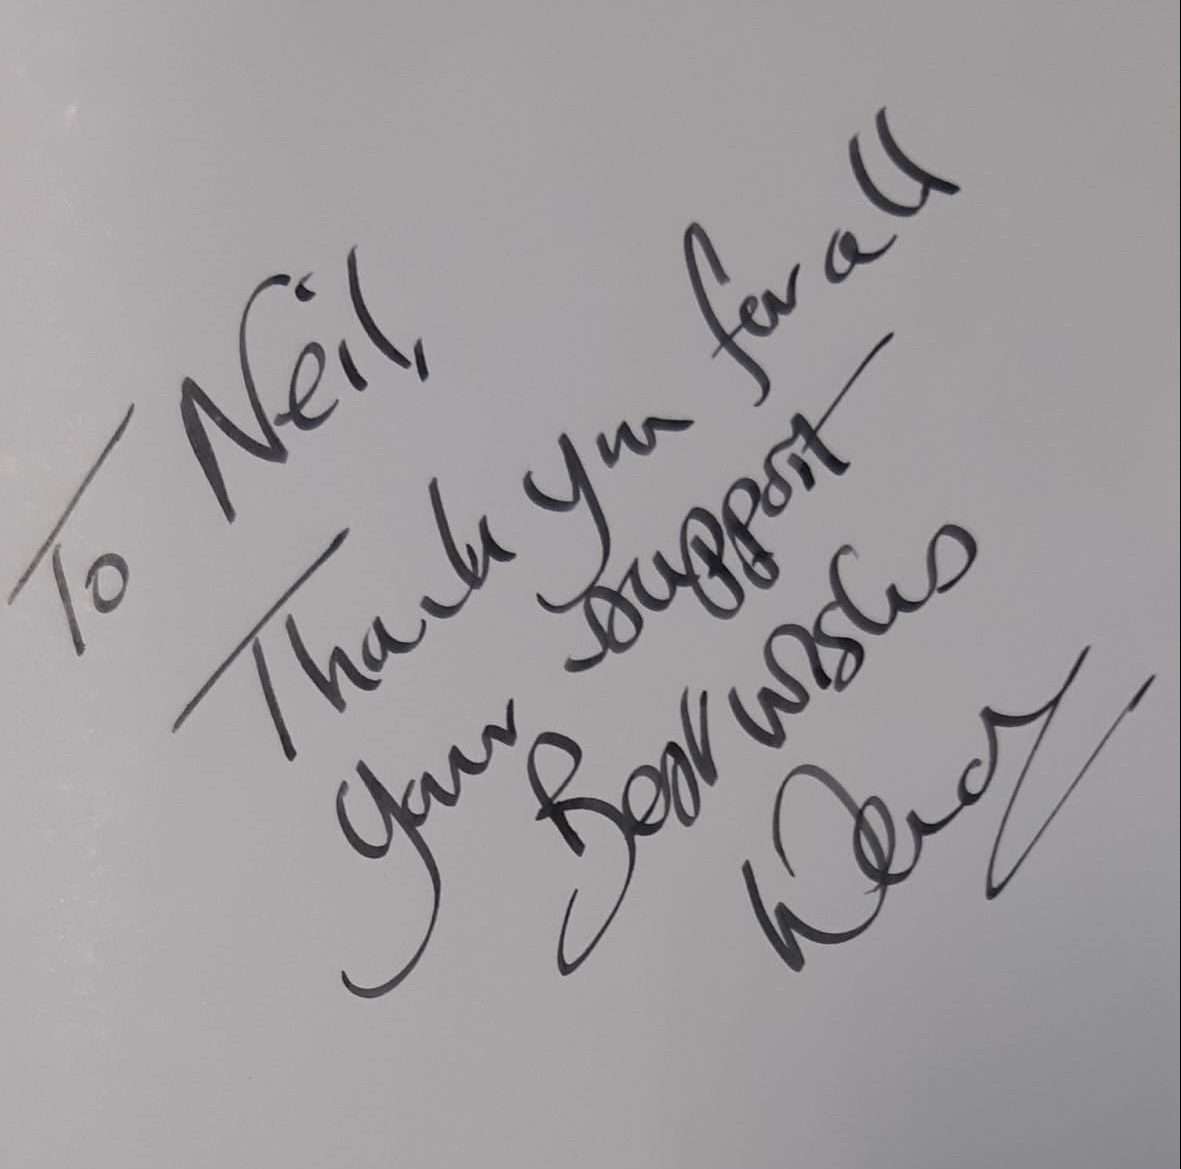 To Neil,
Thank you for all
your support
Best wishes
Wendy